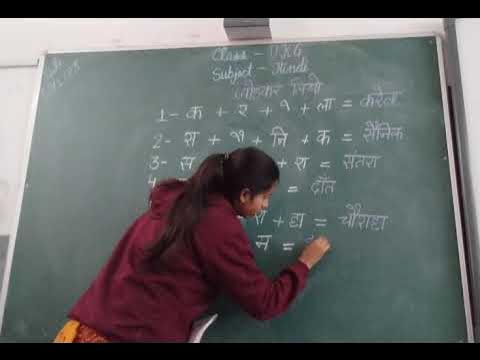 Class - UKG
Subject - Hindi
जोड़कर लिखो
1- क + र + े + ला = करेला
2- स + ै + नि + क = सैनिक
3- स + रा = संतरा
4 = दाँत
रा + हा = चौराहा
न =